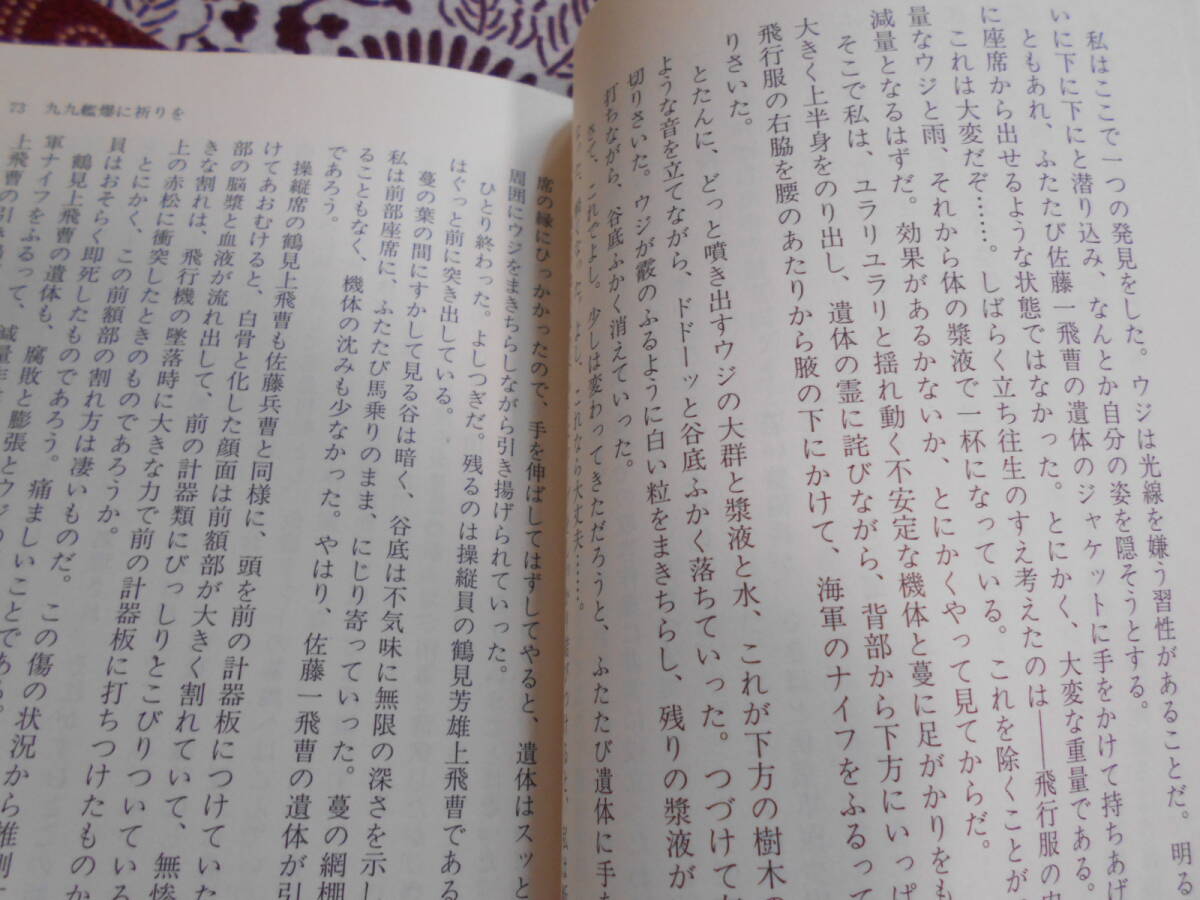 私はここで一つの発見をした。ウジは光線を嫌う習性があることだ。明る
いに下に下にと潜り込み、なんとか自分の姿を隠そうとする。
ともあれ、ふたたび佐藤一飛曹の遺体のジャケットに手をかけて持ちあげ
に座席から出せるような状態ではなかった。とにかく、大変な重量である。
これは大変だぞ……。しばらく立ち往生のすえ考えたのは——飛行服の中
量なウジと雨、それから体の漿液で一杯になっている。これを除くことが
減量となるはずだ。効果があるかないか、とにかくやって見てからだ。
そこで私は、ユラリユラリと揺れ動く不安定な機体と蔓に足がかりをも
大きく上半身をのり出し、遺体の霊に詫びながら、背部から下方にいっぱ
飛行服の右脇を腰のあたりから腋の下にかけて、海軍のナイフをふるって
りさいた。
とたんに、どっと噴き出すウジの大群と漿液と水、これが下方の樹木の
ような音を立てながら、ドドーッと谷底ふかく落ちていった。つづけて
切りさいた。ウジが霰のふるように白い粒をまきちらし、残りの漿液が
打ちながら、谷底ふかく消えていった。
さて、これでよし。少しは変わってきただろうと、ふたたび遺体に手を
よし、これなら大丈夫……。
73 九九艦爆に祈りを
席の縁にひっかかったので、手を伸ばしてはずしてやると、遺体はスッと
周囲にウジをまきちらしながら引き揚げられていった。
ひとり終わった。よしつぎだ。残るのは操縦員の鶴見芳雄上飛曹である
はぐっと前に突き出している。
蔓の葉の間にすかして見る谷は暗く、谷底は不気味に無限の深さを示し
私は前部座席に、ふたたび馬乗りのまま、にじり寄っていった。蔓の網棚
ることもなく、機体の沈みも少なかった。やはり、佐藤一飛曹の遺体が引
であろう。
操縦席の鶴見上飛曹も佐藤兵曹と同様に、頭を前の計器板につけていた
けてあおむけると、白骨と化した顔面は前額部が大きく割れていて、無惨
部の脳漿と血液が流れ出して、前の計器類にびっしりとこびりついている
きな割れは、飛行機の墜落時に大きな力で前の計器板に打ちつけたものか
上の赤松に衝突したときのものであろうか。
とにかく、この前額部の割れ方は凄いものだ。この傷の状況から推測す
員はおそらく即死したものであろう。痛ましいことである。
鶴見上飛曹の遺体も、腐敗と膨張とウジの
軍ナイフをふるって、減量作
上飛曹の引き